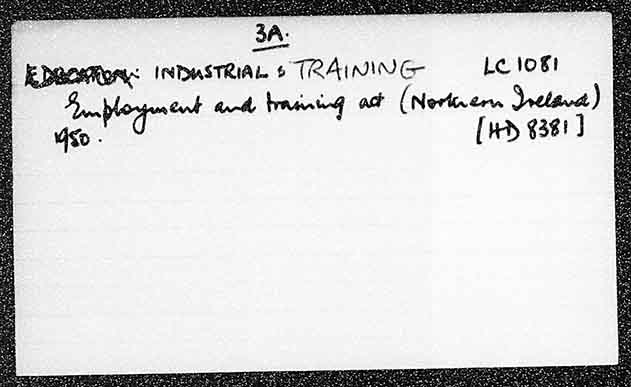 3A.
EDUCATION: INDUSTRIAL : TRAINING LC 1081
Employment and training act (Northern Ireland)
1950. [HD 8381]